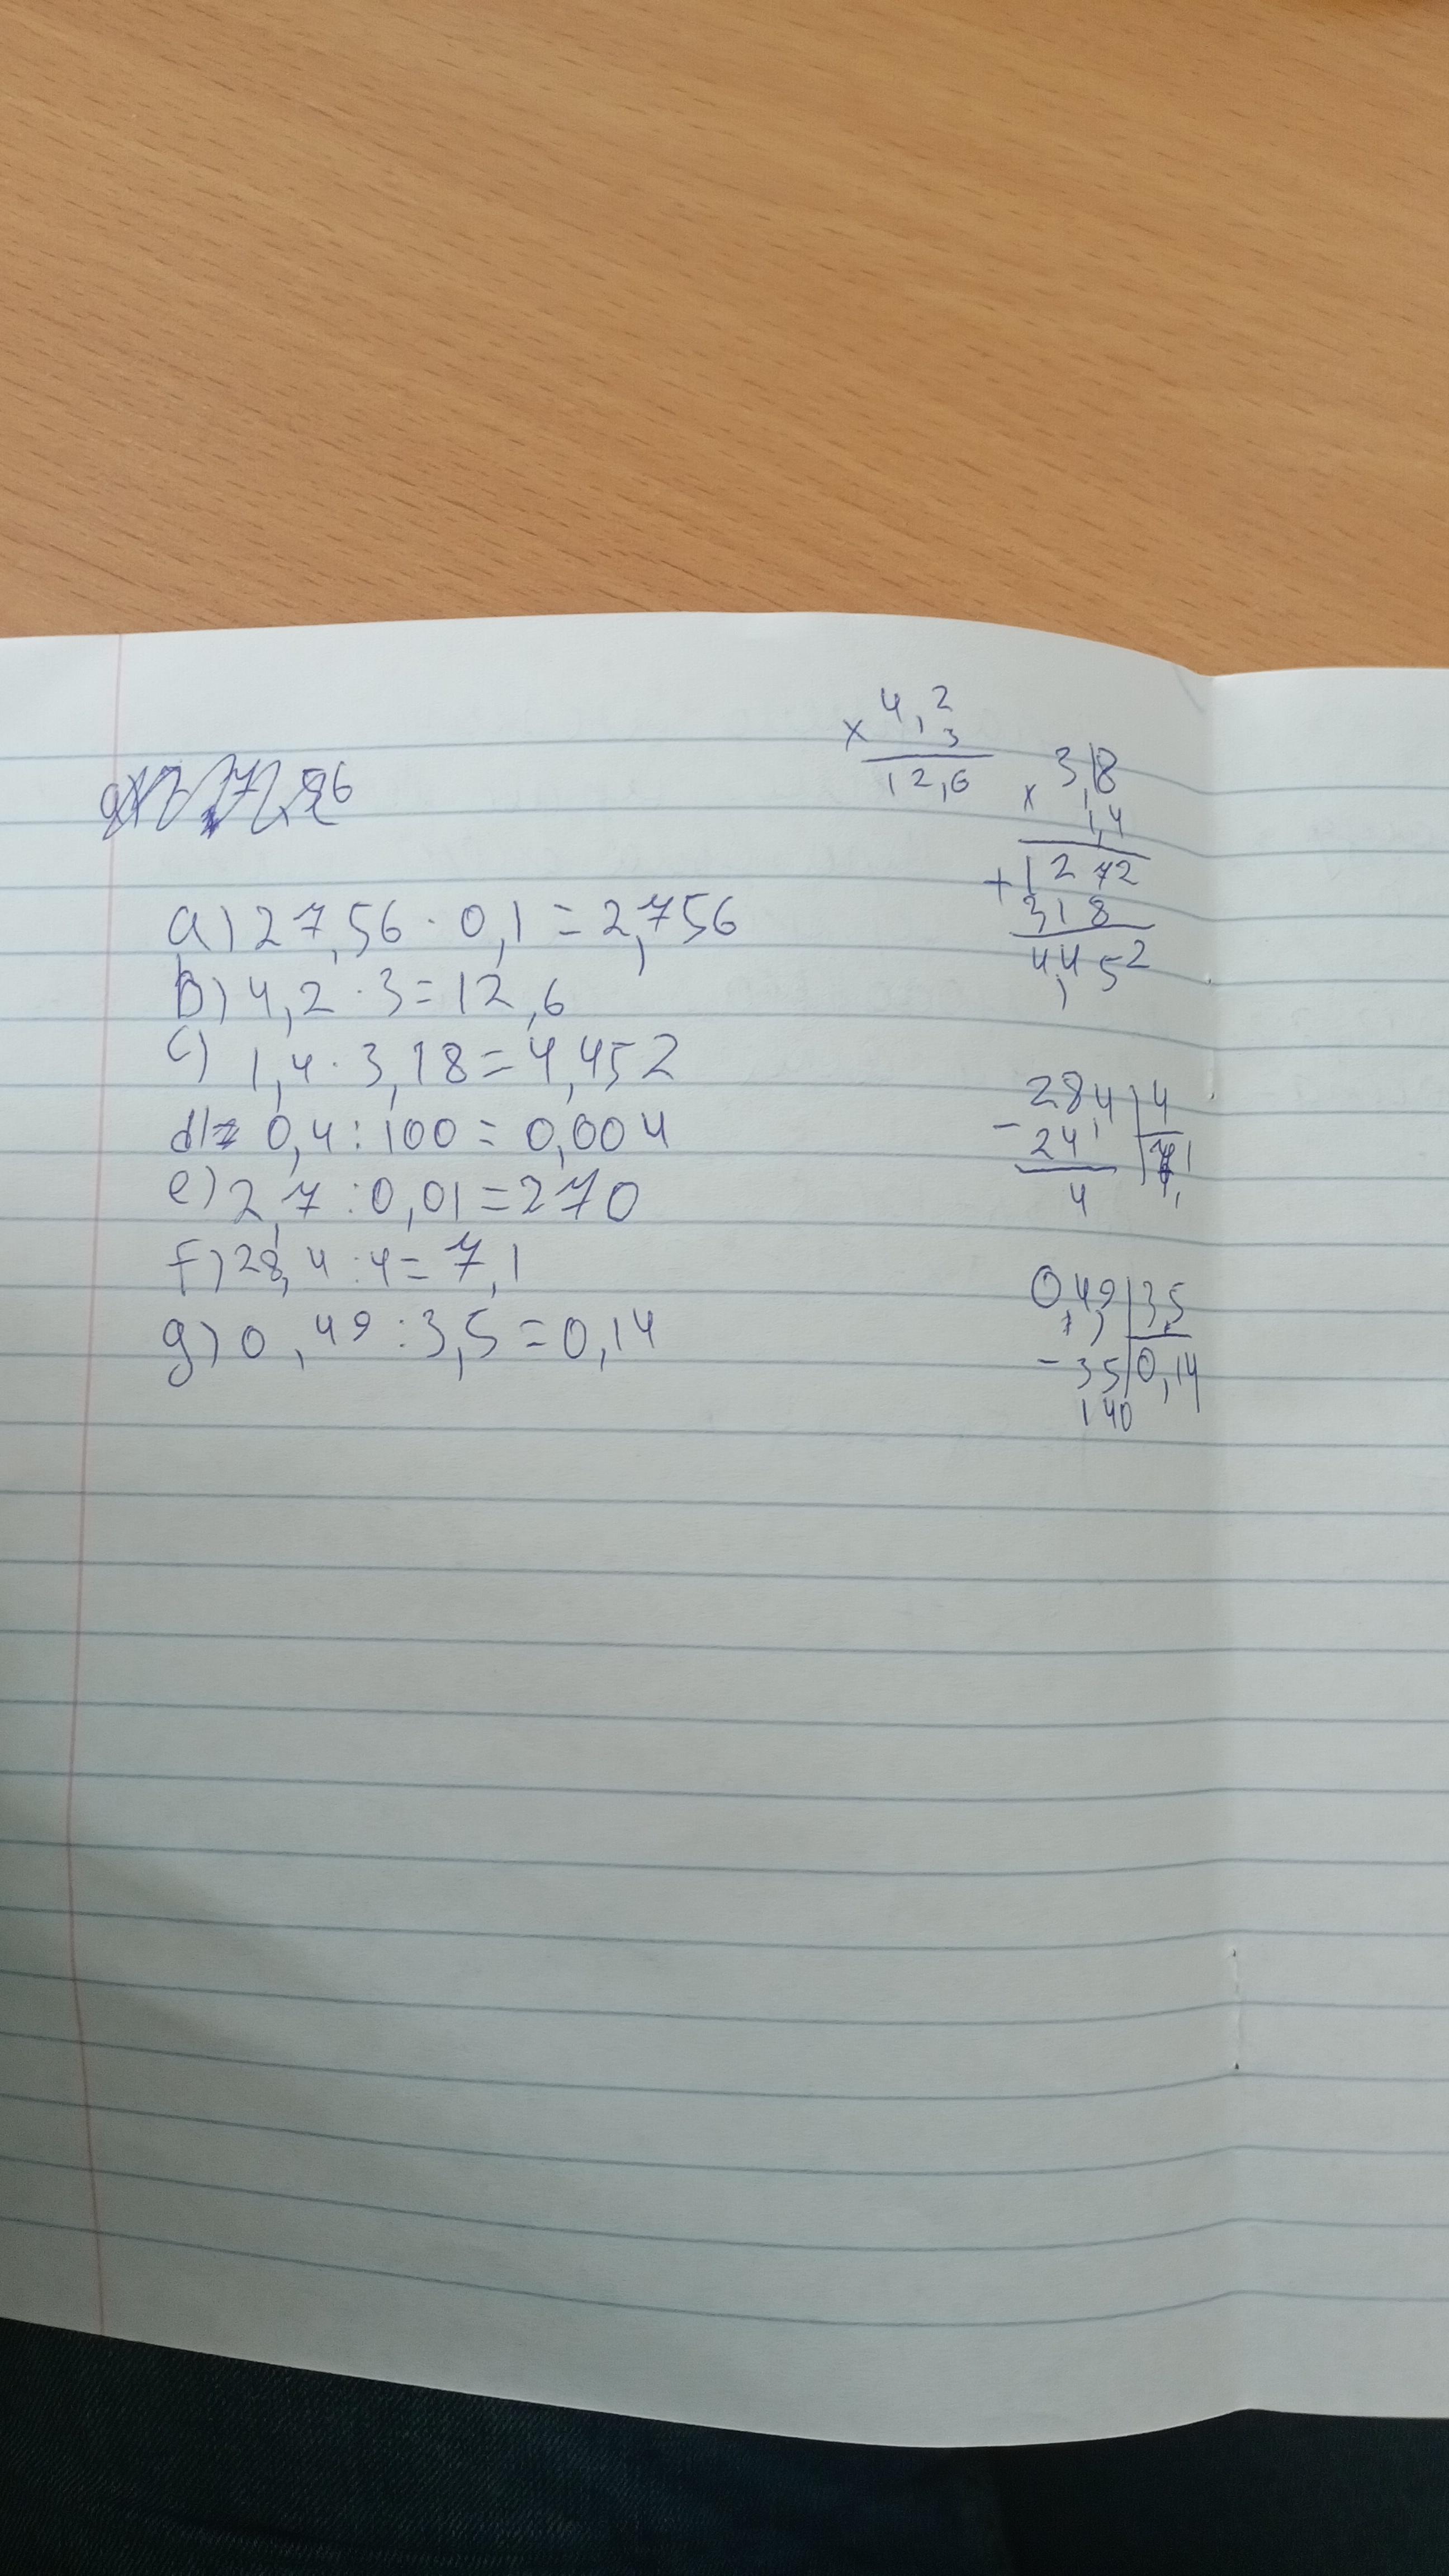 a) 27,56 · 0,1 = 2,756
b) 4,2 · 3 = 12,6
c) 1,4 · 3,18 = 4,452
d) 0,4 : 100 = 0,004
e) 2,7 : 0,01 = 270
f) 28,4 : 4 = 7,1
g) 0,49 : 3,5 = 0,14
4,2
x 3
12,6
3,18
x 1,4
+ 1272
318
4,452
284 | 4
- 24 | 7,1
4
0,49 | 3,5
- 35 | 0,14
140